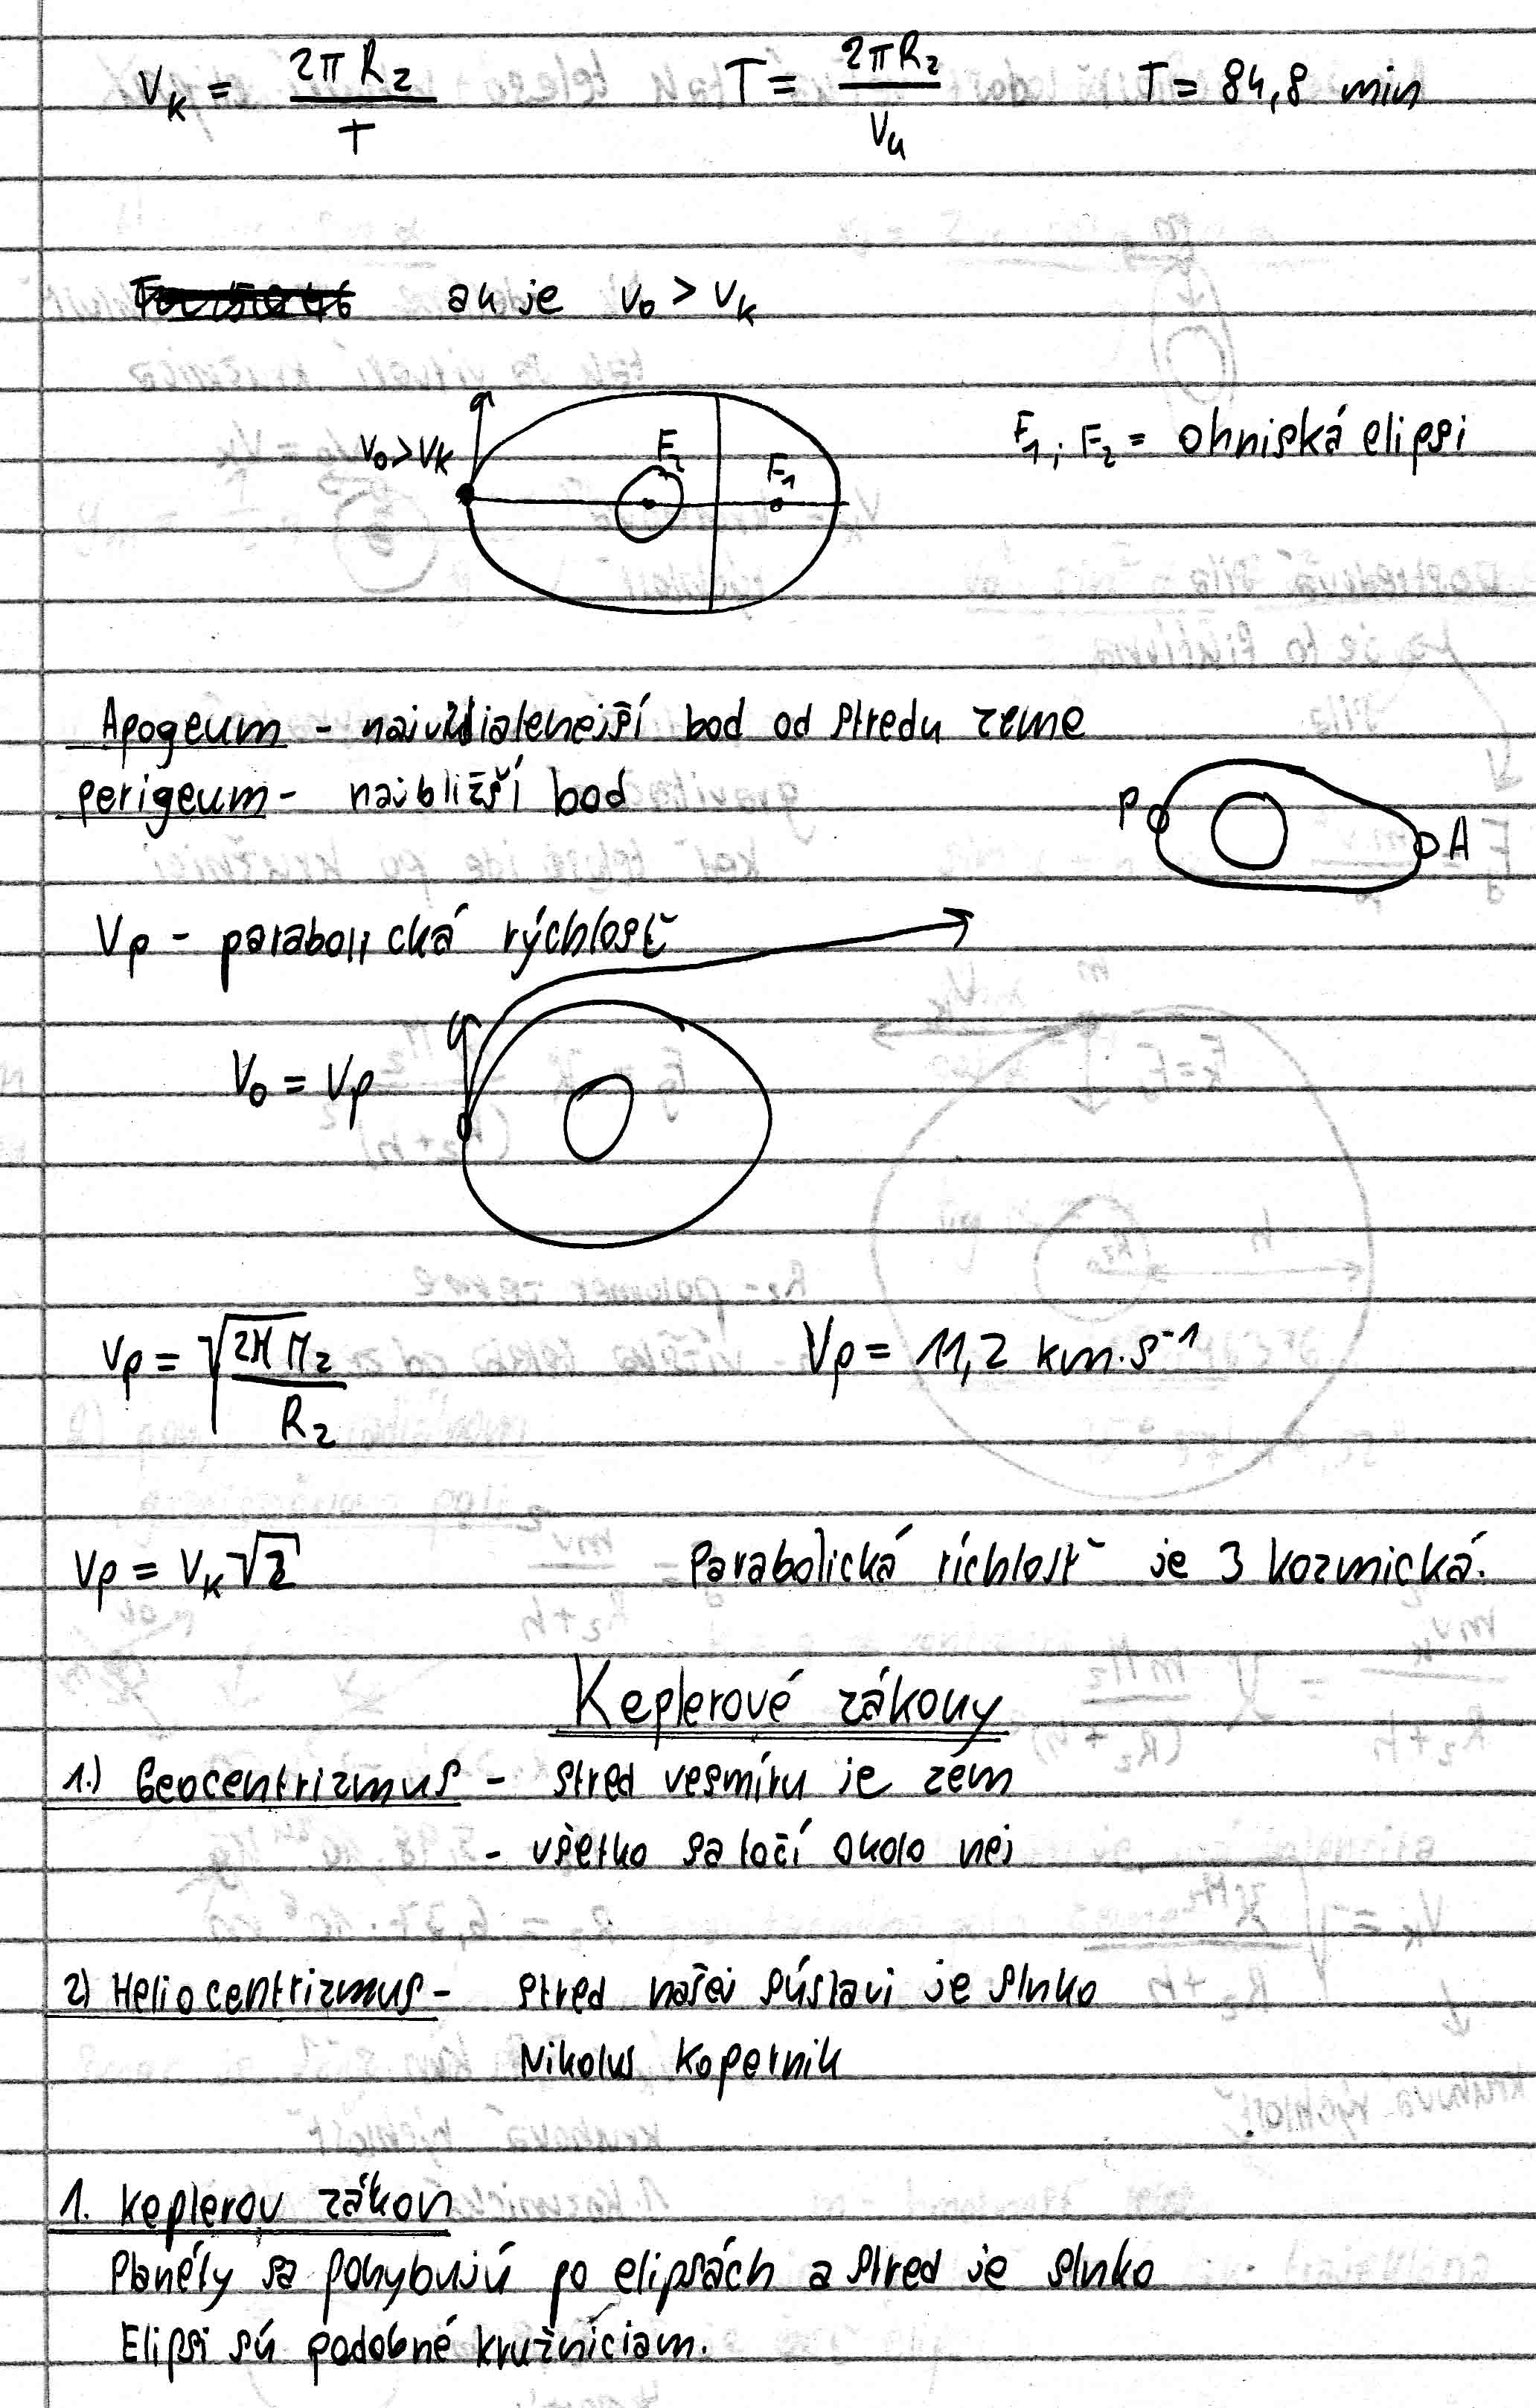 V_K = 2πR_Z / T    T = 2πR_Z / V_K    T = 84,8 min
ak je V_0 > V_K
V_0 > V_K    F_2    F_1    F_1, F_2 = ohniská elipsi
Apogeum - najvzdialenejší bod od stredu zeme
perigeum - najbližší bod
P    A
V_P - parabolická rýchlosť
V_0 = V_P
V_P = √(2ϰM_Z / R_Z)    V_P = 11,2 km.s⁻¹
V_P = V_K √2    Parabolická ríchlosť je 3 kozmická.
Keplerové zákony
1.) Geocentrizmus - stred vesmíru je zem
- všetko sa točí okolo nej
2) Heliocentrizmus - stred našej sústavi je slnko
Nikolus Kopernik
1. Keplerov zákon
Planéty sa pohybujú po elipsách a stred je slnko
Elipsi sú podobné kružniciam.